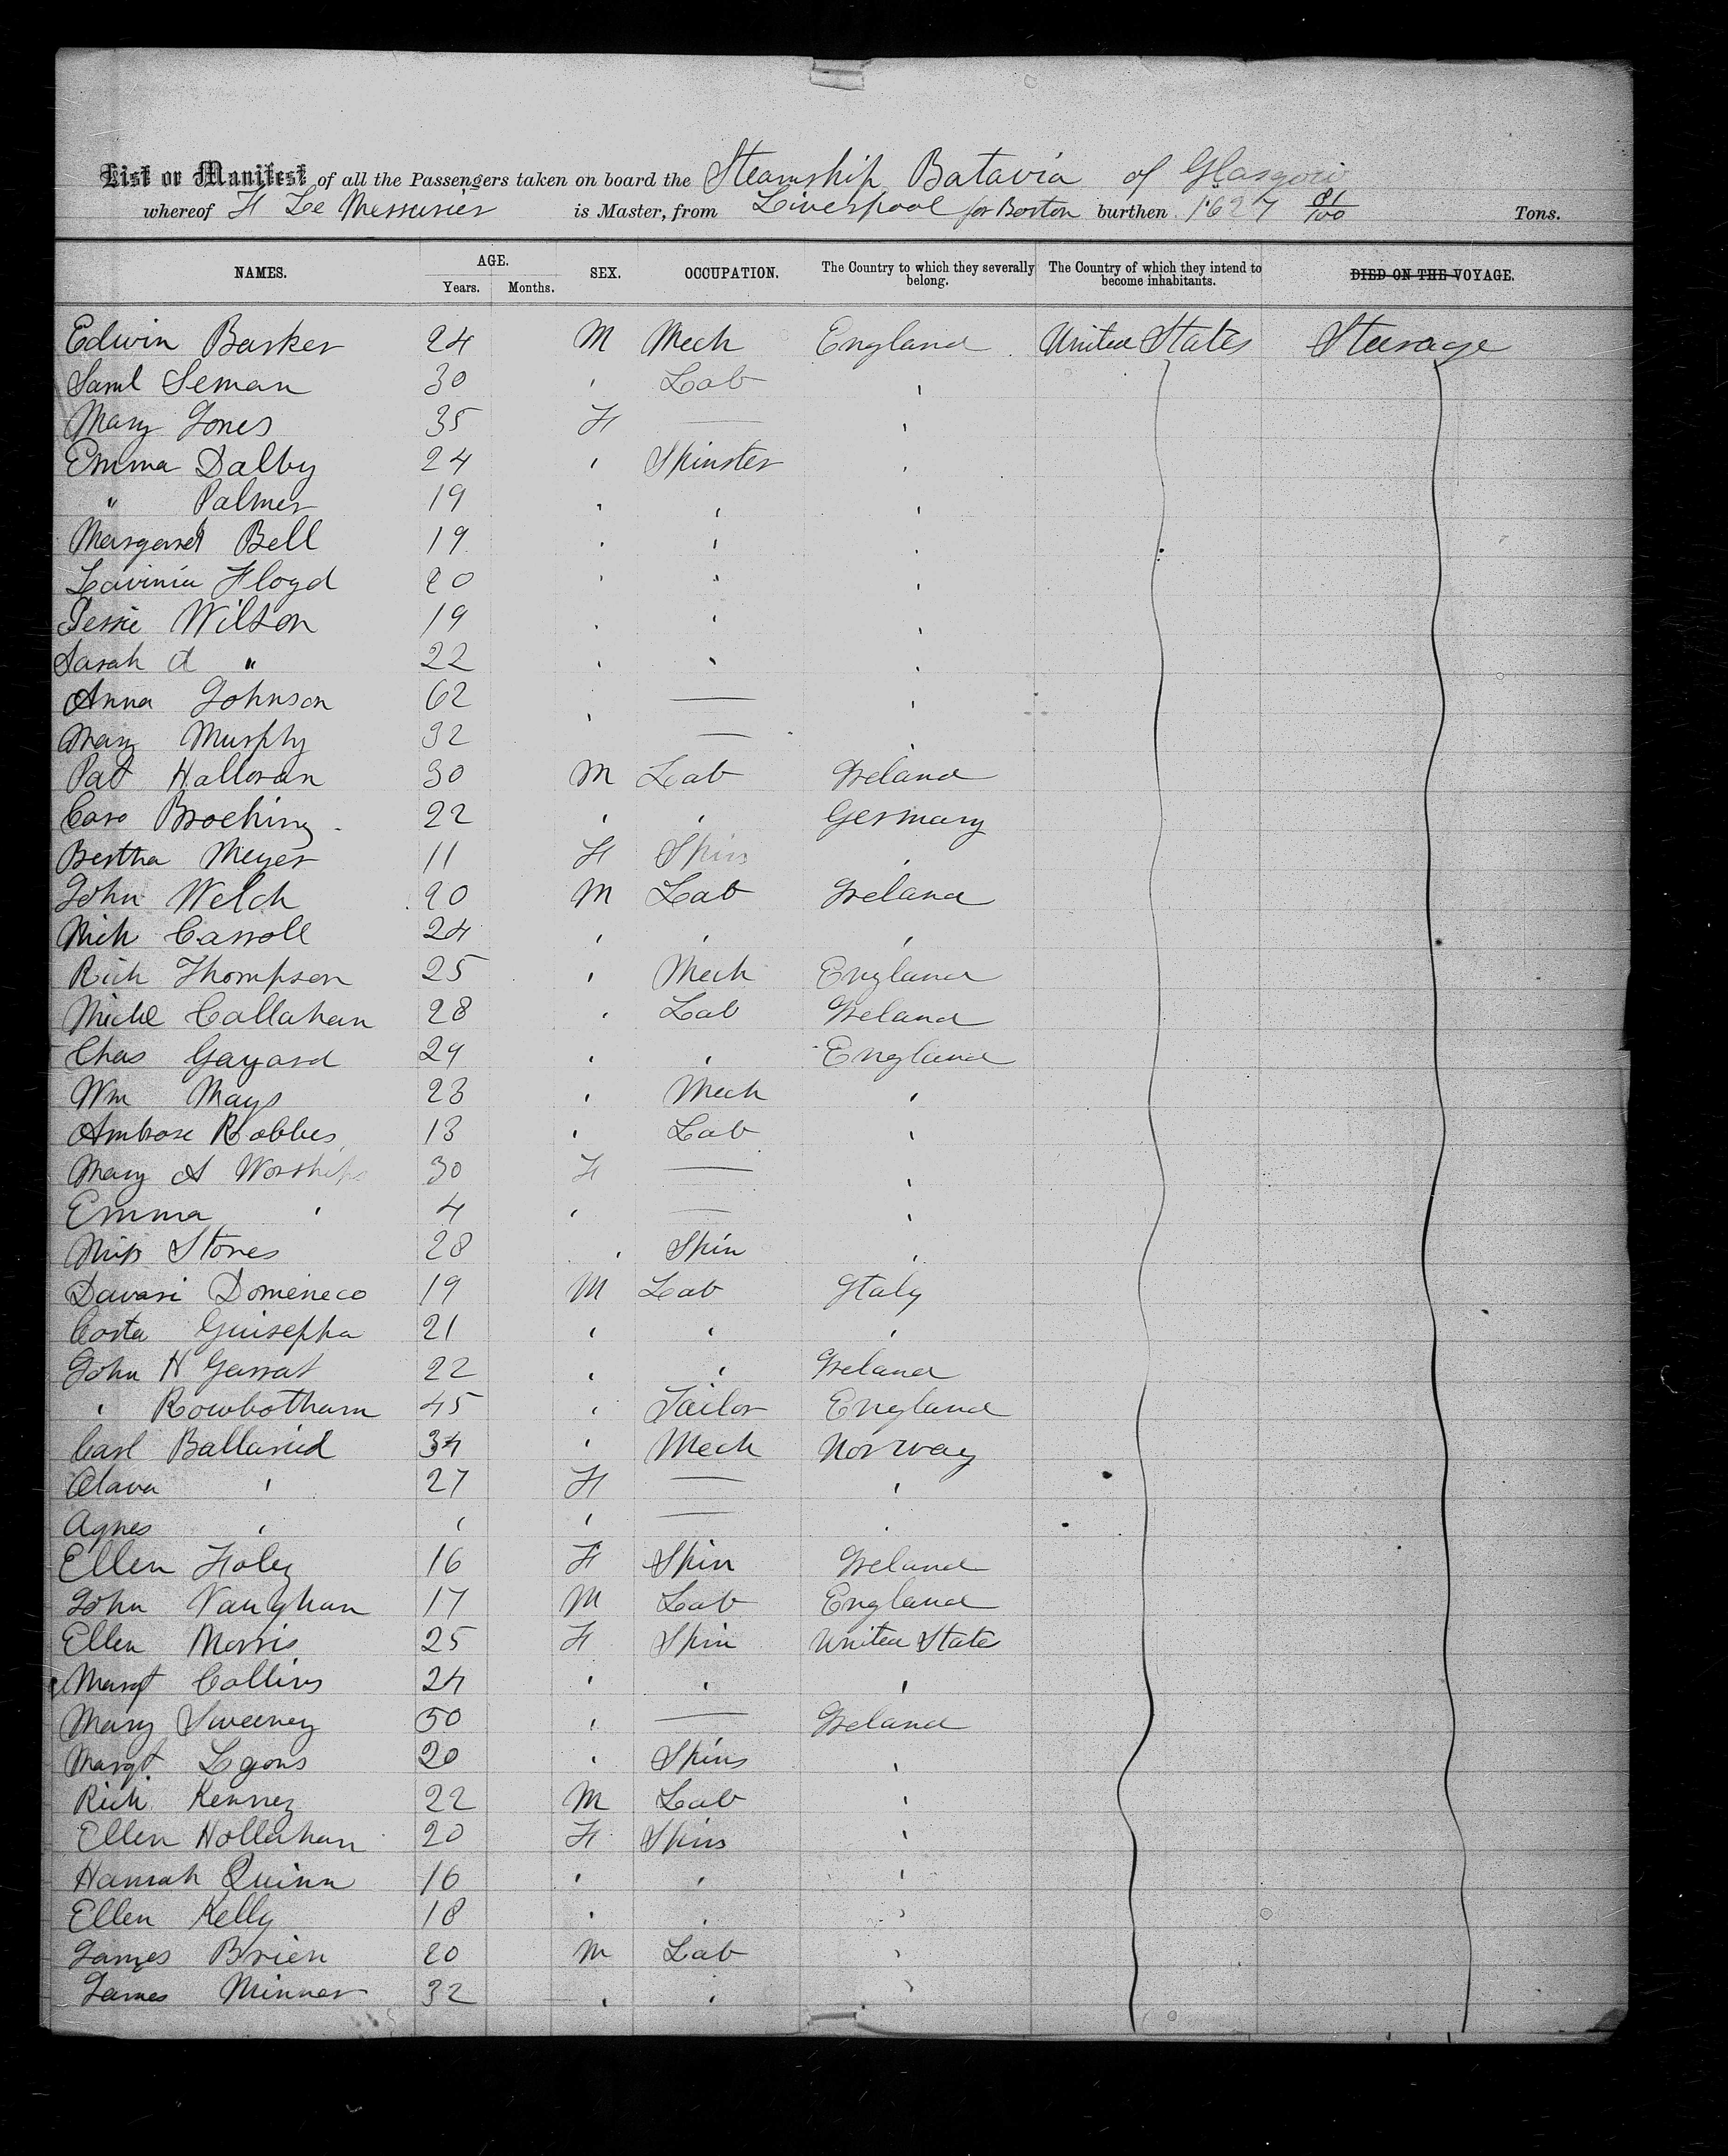 List or Manifest of all the Passengers taken on board the Steamship Batavia of Glasgow
whereof H Le Messurier is Master, from Liverpool for Boston burthen 1627 81/100 Tons.
NAMES. AGE. Years. Months. SEX. OCCUPATION. The Country to which they severally belong. The Country of which they intend to become inhabitants. DIED ON THE VOYAGE.
Edwin Barker 24 M Mech England United States Steerage
Saml Seman 30 " Lab "
Mary Jones 35 F — "
Emma Dalby 24 " Spinster "
" Palmer 19 " " "
Margaret Bell 19 " " "
Lavinia Floyd 20 " " "
Jessie Wilson 19 " " "
Sarah A " 22 " " "
Anna Johnson 62 — "
Mary Murphy 32 " — "
Pat Halloran 30 M Lab Ireland
Caro Broeking 22 " " Germany
Bertha Meyer 11 F Spins "
John Welch 20 M Lab Ireland
Mich Carroll 24 " " "
Rich Thompson 25 " Mech England
Michl Callahan 28 " Lab Ireland
Chas Gayard 24 " " England
Wm Mays 23 " Mech "
Ambrose Robbes 13 " Lab "
Mary A Worships 30 F — "
Emma " 4 " — "
Miss Stones 28 " Spin "
Davasi Domeneco 19 M Lab Italy
Costa Guiseppa 21 " " "
John H Garrat 22 " " Ireland
" Rowbotham 45 " Tailor England
Carl Ballarud 34 " Mech Norway
Olava " 27 F — "
Agnes " " " — "
Ellen Foley 16 F Spin Ireland
John Vaughan 17 M Lab England
Ellen Morris 25 F Spin United States
Margt Collins 24 " " "
Mary Sweeney 50 " — Ireland
Margt Lyons 20 " Spins "
Rich Kenney 22 M Lab "
Ellen Hollahan 20 F Spins "
Hannah Quinn 16 " " "
Ellen Kelly 18 " " "
James Brien 20 M Lab "
James Minner 32 " " "